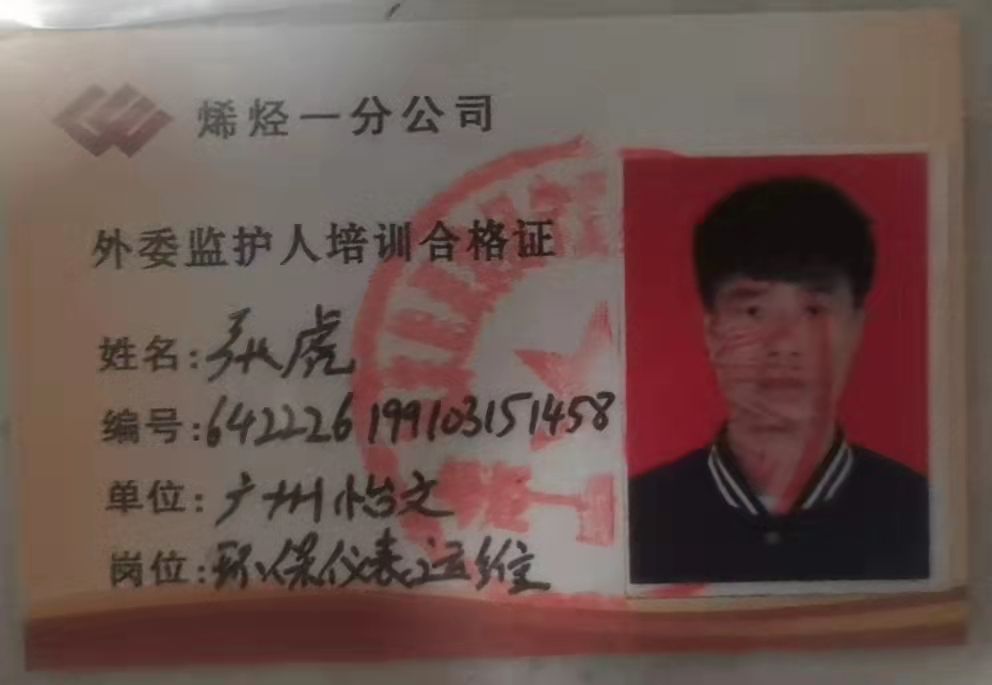 烯烃一分公司
外委监护人培训合格证
姓名:张虎
编号:642226199103151458
单位:广州怡文
岗位:环保仪表运维